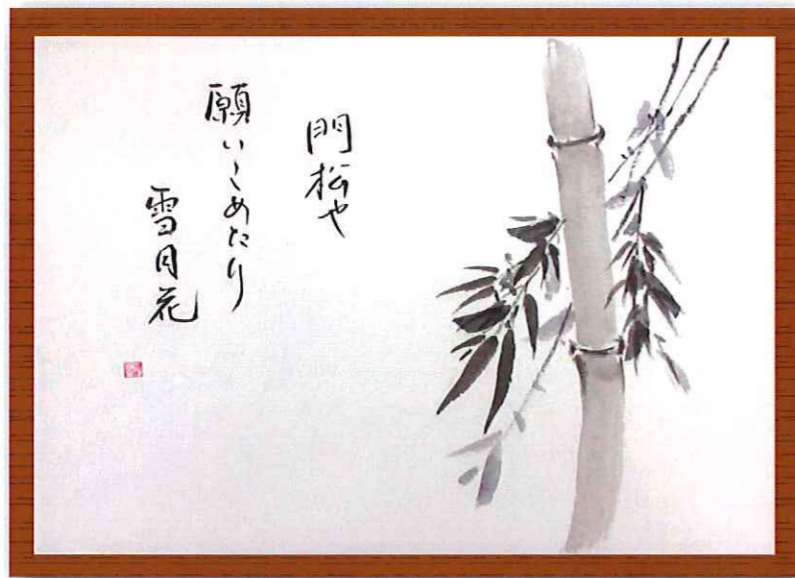 門松や
願いこめたり
雪月花